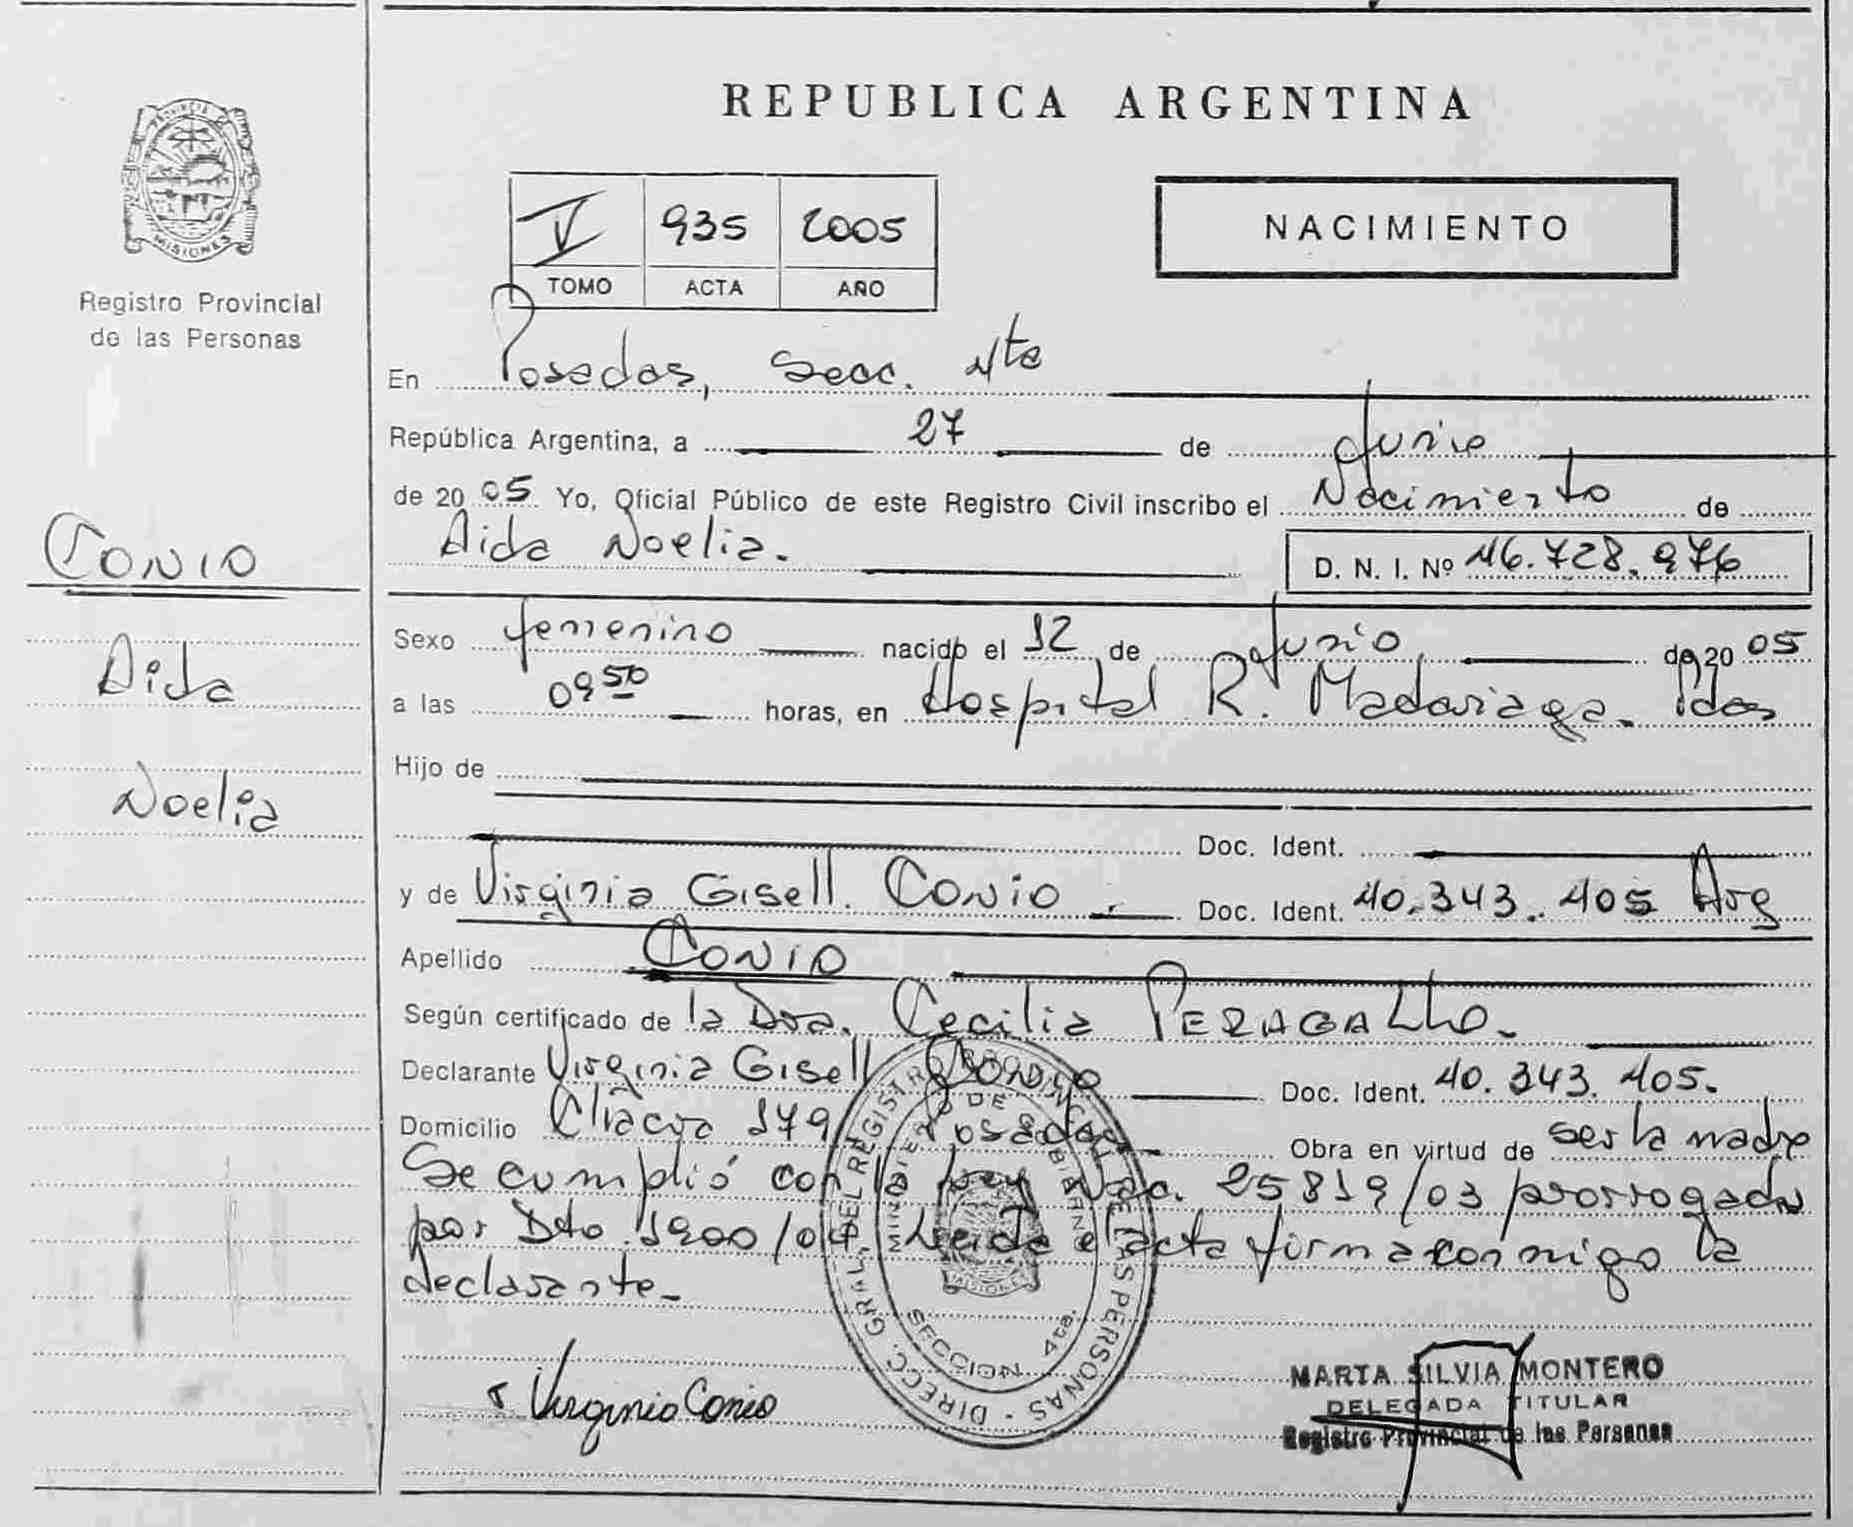 REPUBLICA ARGENTINA
PROVINCIA DE
MISIONES
Registro Provincial
de las Personas
V 935 2005
TOMO ACTA AÑO
NACIMIENTO
En Posadas, Secc. 4ta
República Argentina, a 27 de Junio
de 2005 Yo, Oficial Público de este Registro Civil inscribo el Nacimiento de
Aida Noelia.
D. N. I. Nº 46.728.976
CONIO
Aida
Noelia
Sexo femenino nacido el 12 de Junio de 2005
a las 09 50 horas, en Hospital R. Madariaga. Pdas
Hijo de
Doc. Ident.
y de Virginia Gisell. Conio. Doc. Ident. 40.343.405 Arg
Apellido CONIO
Según certificado de la Dra. Cecilia PERAGALLO.
Declarante Virginia Gisell Conio Doc. Ident. 40.343.405.
Domicilio Chacra 179 Posadas Obra en virtud de ser la madre
Se cumplió con la Ley Nac. 25819/03 prorrogada
por Dto 1900/04. Leida el acta firma conmigo la
declarante.
DIRECC. GRAL. DEL REGISTRO PROVINCIAL DE LAS PERSONAS
MINISTERIO DE GOBIERNO
MISIONES
SECCION 4ta.
Virginia Conio
MARTA SILVIA MONTERO
DELEGADA TITULAR
Registro Provincial de las Personas